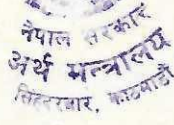 नेपाल सरकार
अर्थ मन्त्रालय
सिंहदरबार, काठमाडौं